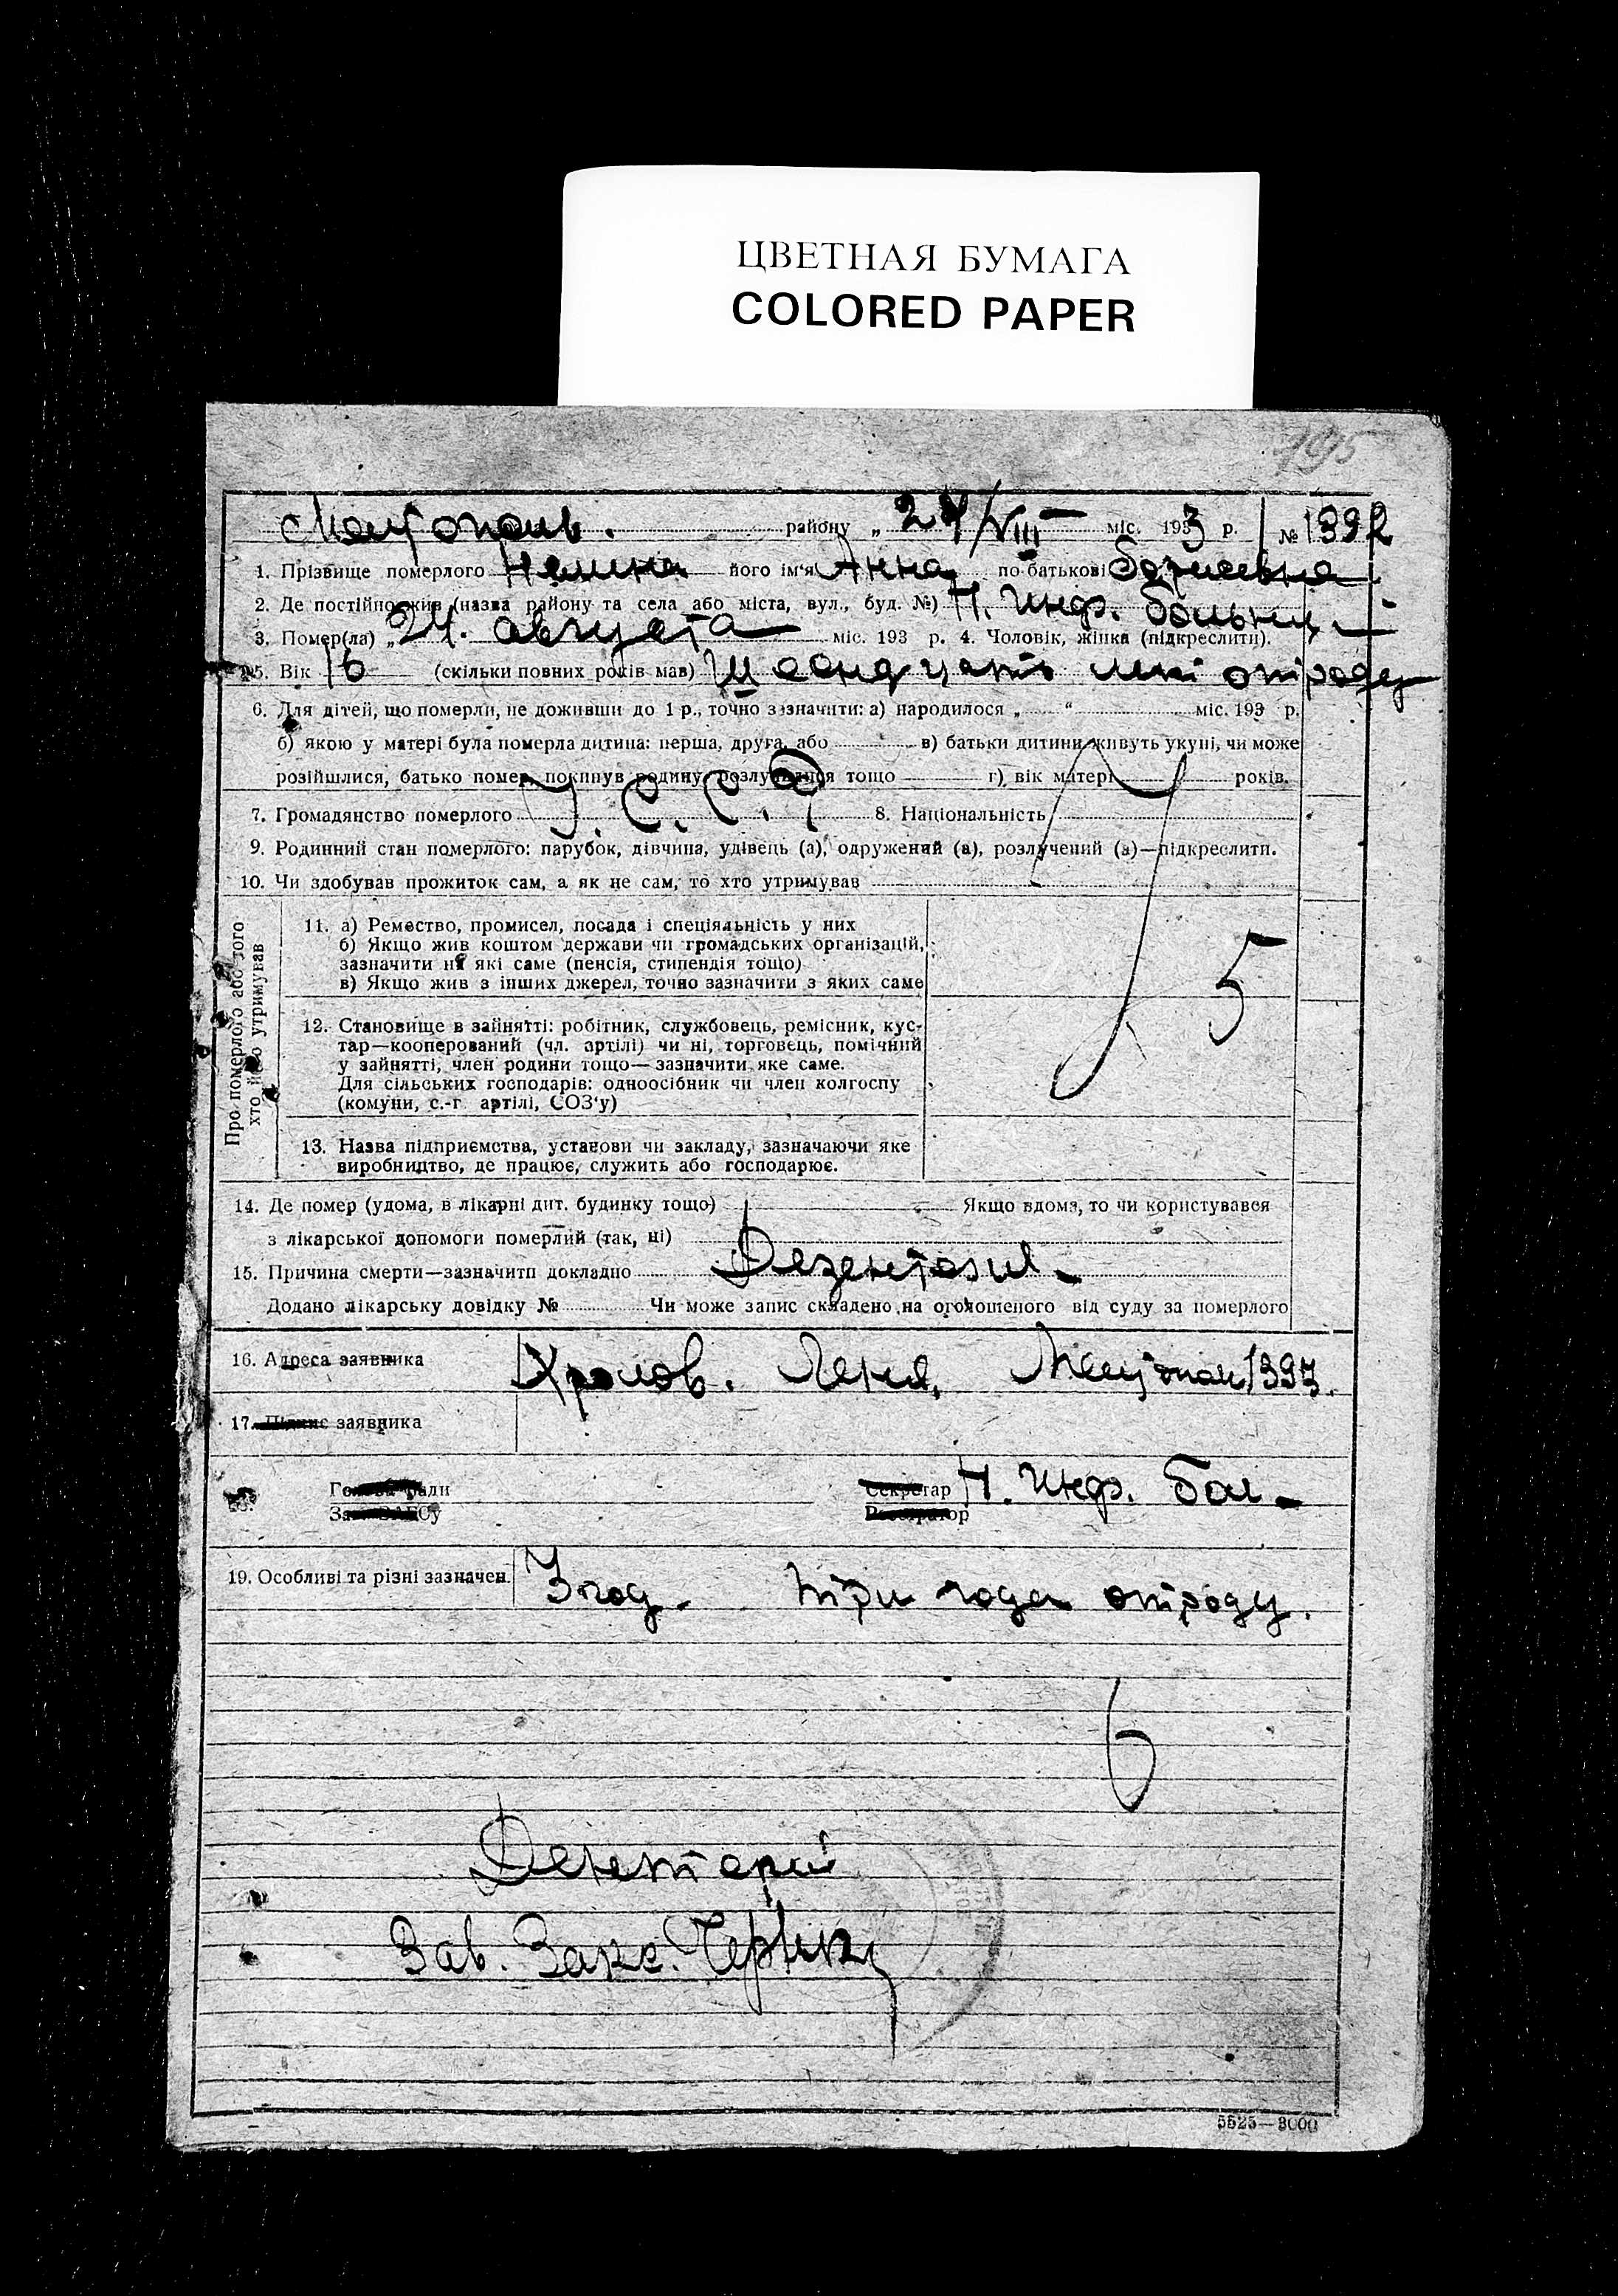 ЦВЕТНАЯ БУМАГА
COLORED PAPER
195
району „ 24/VIII міс. 1933 р. № 1392
1. Прізвище померлого його ім'я Анна по батькові
2. Де постійно жив (назва району та села або міста, вул., буд. №) Н. Инф. больниц
3. Помер(ла) „ 24. августа міс. 193 р. 4. Чоловік, жінка (підкреслити).
5. Вік 16 (скільки повних років мав) лет отроду
6. Для дітей, що померли, не доживши до 1 р., точно зазначити: а) народилося „ “ міс. 193 р.
б) якою у матері була померла дитина: перша, друга, або в) батьки дитини живуть укупі, чи може
розійшлися, батько помер, покинув родину, розлучилися тощо г) вік матері років.
7. Громадянство померлого У.С.С.Р 8. Національність
9. Родинний стан померлого: парубок, дівчина, удівець (а), одружений (а), розлучений (а)—підкреслити.
10. Чи здобував прожиток сам, а як не сам, то хто утримував
Про померлого або того
хто його утримував
11. а) Ремество, промисел, посада і спеціяльність у них
б) Якщо жив коштом держави чи громадських організацій,
зазначити на які саме (пенсія, стипендія тощо)
в) Якщо жив з інших джерел, точно зазначити з яких саме
5
12. Становище в зайнятті: робітник, службовець, ремісник, кус-
тар—кооперований (чл. артілі) чи ні, торговець, помічний
у зайнятті, член родини тощо—зазначити яке саме.
Для сільських господарів: одноосібник чи член колгоспу
(комуни, с.-г. артілі, СОЗ'у)
13. Назва підприємства, установи чи закладу, зазначаючи яке
виробництво, де працює, служить або господарює.
14. Де помер (удома, в лікарні дит. будинку тощо) Якщо вдома, то чи користувався
з лікарської допомоги померлий (так, ні)
15. Причина смерти—зазначити докладно
Додано лікарську довідку № Чи може запис складено на оголошеного від суду за померлого
16. Адреса заявника Леня. 1393.
17. Підпис заявника
Голова ради Секретар Н. Инф. бол-
Зав. ЗАГСу Реєстратор
19. Особливі та різні зазначен. 3 год. три года отроду.
6
Зав. Загс.
5525—3000